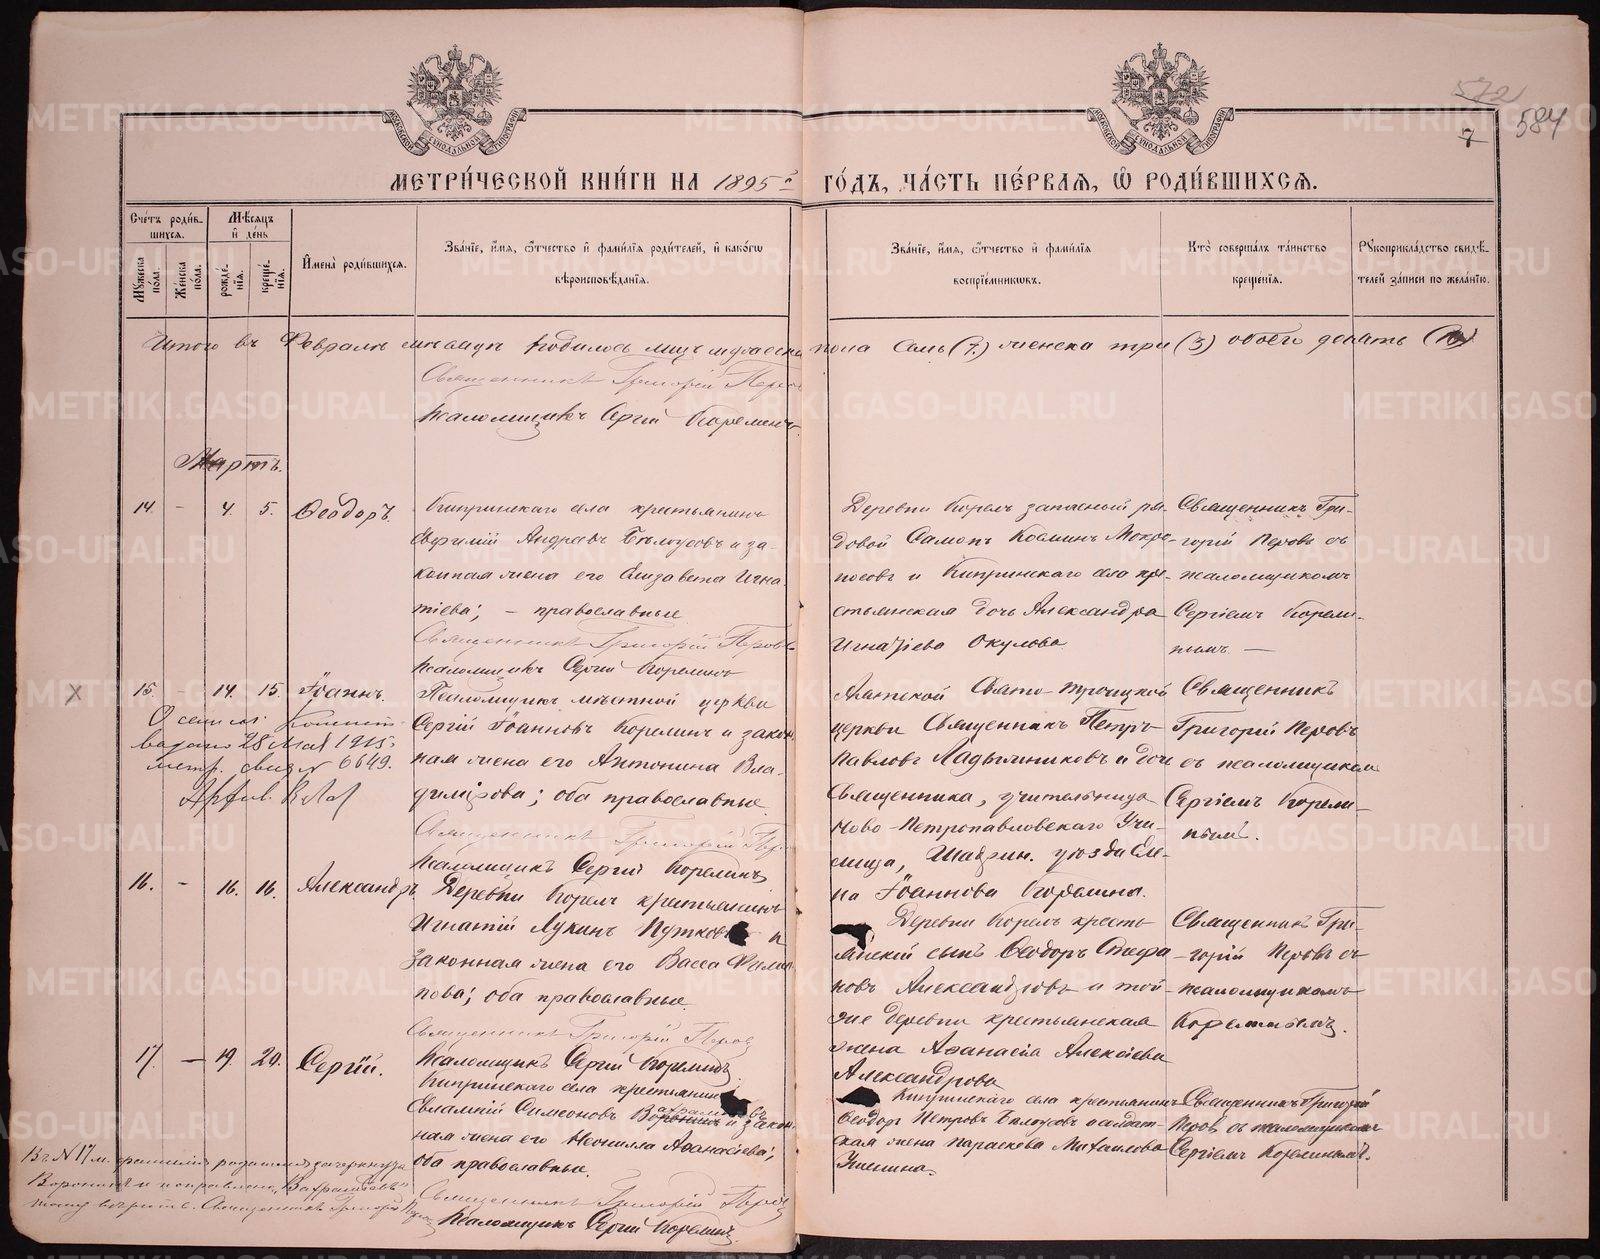 572
7 584
МЕТРИЧЕСКОЙ КНИГИ НА 1895 й ГОДЪ, ЧАСТЬ ПЕРВАЯ, Ѡ РОДИВШИХСЯ.
Счетъ родившихся.
Мужеска пола.
Женска пола.
Мѣсяцъ и день
рожденія.
крещенія.
Имена родившихся.
Званіе, имя, ѿчество и фамилія родителей, и какогѡ вѣроисповѣданія.
Званіе, имя, ѿчество и фамилія воспріемникѡвъ.
Кто совершалъ таинство крещенія.
Рукоприкладство свидѣтелей записи по желанію.
Итого въ Февралѣ мѣсяцѣ родилось лицъ мужеска пола семь (7.) женска три (3) обоего
Священникъ Григорій Перов
Псаломщикъ Сергій Корелинъ
Мартъ.
14. - 4. 5. Ѳеодоръ.
Кипринскаго села крестьянинъ
Евфимій Андреевъ Бѣлоусовъ и за-
конная жена его Елизавета Игна-
тіева; - православные
Священникъ Григорій Перовъ
Псаломщикъ Сергій Корелинъ
Деревни Корелъ запасный ря-
довой Самонъ Косминъ Мокро-
носовъ и Кипринскаго села кре-
стьянская дочь Александра
Игнатіева Окулова
Священникъ Гри-
горій Перовъ съ
псаломщикомъ
Сергіемъ Корели-
нымъ -
15. - 14. 15. Іоаннъ.
Псаломщикъ мѣстной церкви
Сергій Іоанновъ Корелинъ и закон-
ная жена его Антонина Вла-
димірова; оба православные
Священникъ Григорій Пер
Псаломщикъ Сергій Корелинъ
Свято-Троицкой
церкви Священникъ Петръ
Павловъ Ладыжниковъ и дочь
Священника, учительница
Ново-Петропавловскаго Учи-
лища, Шадрин. уѣзда Еле-
на Іоаннова Корелина.
Священникъ
Григорій Перовъ
съ псаломщикомъ
Сергіемъ Корели-
нымъ.
X
выдано 28 Мая 1915
метр. свид № 6649.
16. - 16. 16. Александръ
Деревни Корелъ крестьянинъ
Игнатій Лукинъ Путков и
законная жена его Васса Фили-
пова; оба православные
Священникъ Григорій Перов
Псаломщикъ Сергій Корелинъ
Деревни Корелъ кресть-
янскій сынъ Ѳеодоръ Стефа-
новъ Александровъ и той-
же деревни крестьянская
жена Аѳанасія Алексіева
Александрова
Священникъ Гри-
горій Перовъ съ
псаломщикомъ
Корелинымъ.
17. - 19. 20. Сергій.
Кипринскаго села крестьянинъ
Евлампій Симеоновъ Воронинъ Вахрамѣевъ и закон-
ная жена его Неонилла Аѳанасіева;
оба православные.
Священникъ Григорій Перов
Псаломщикъ Сергій Корелинъ
Кипринскаго села крестьянинъ
Ѳеодоръ Петровъ Бѣлоусовъ и солдат-
ская жена Параскева Михаилова
Священникъ Григорій
Перовъ съ псаломщикомъ
Сергіемъ Корелинымъ.
Въ № 17 м. фамилія родителя зачеркнута
Воронинъ и исправлено „Вахрамѣевъ"
тому вѣрить. Священникъ Григорій Перовъ
METRIKI.GASO-URAL.RU